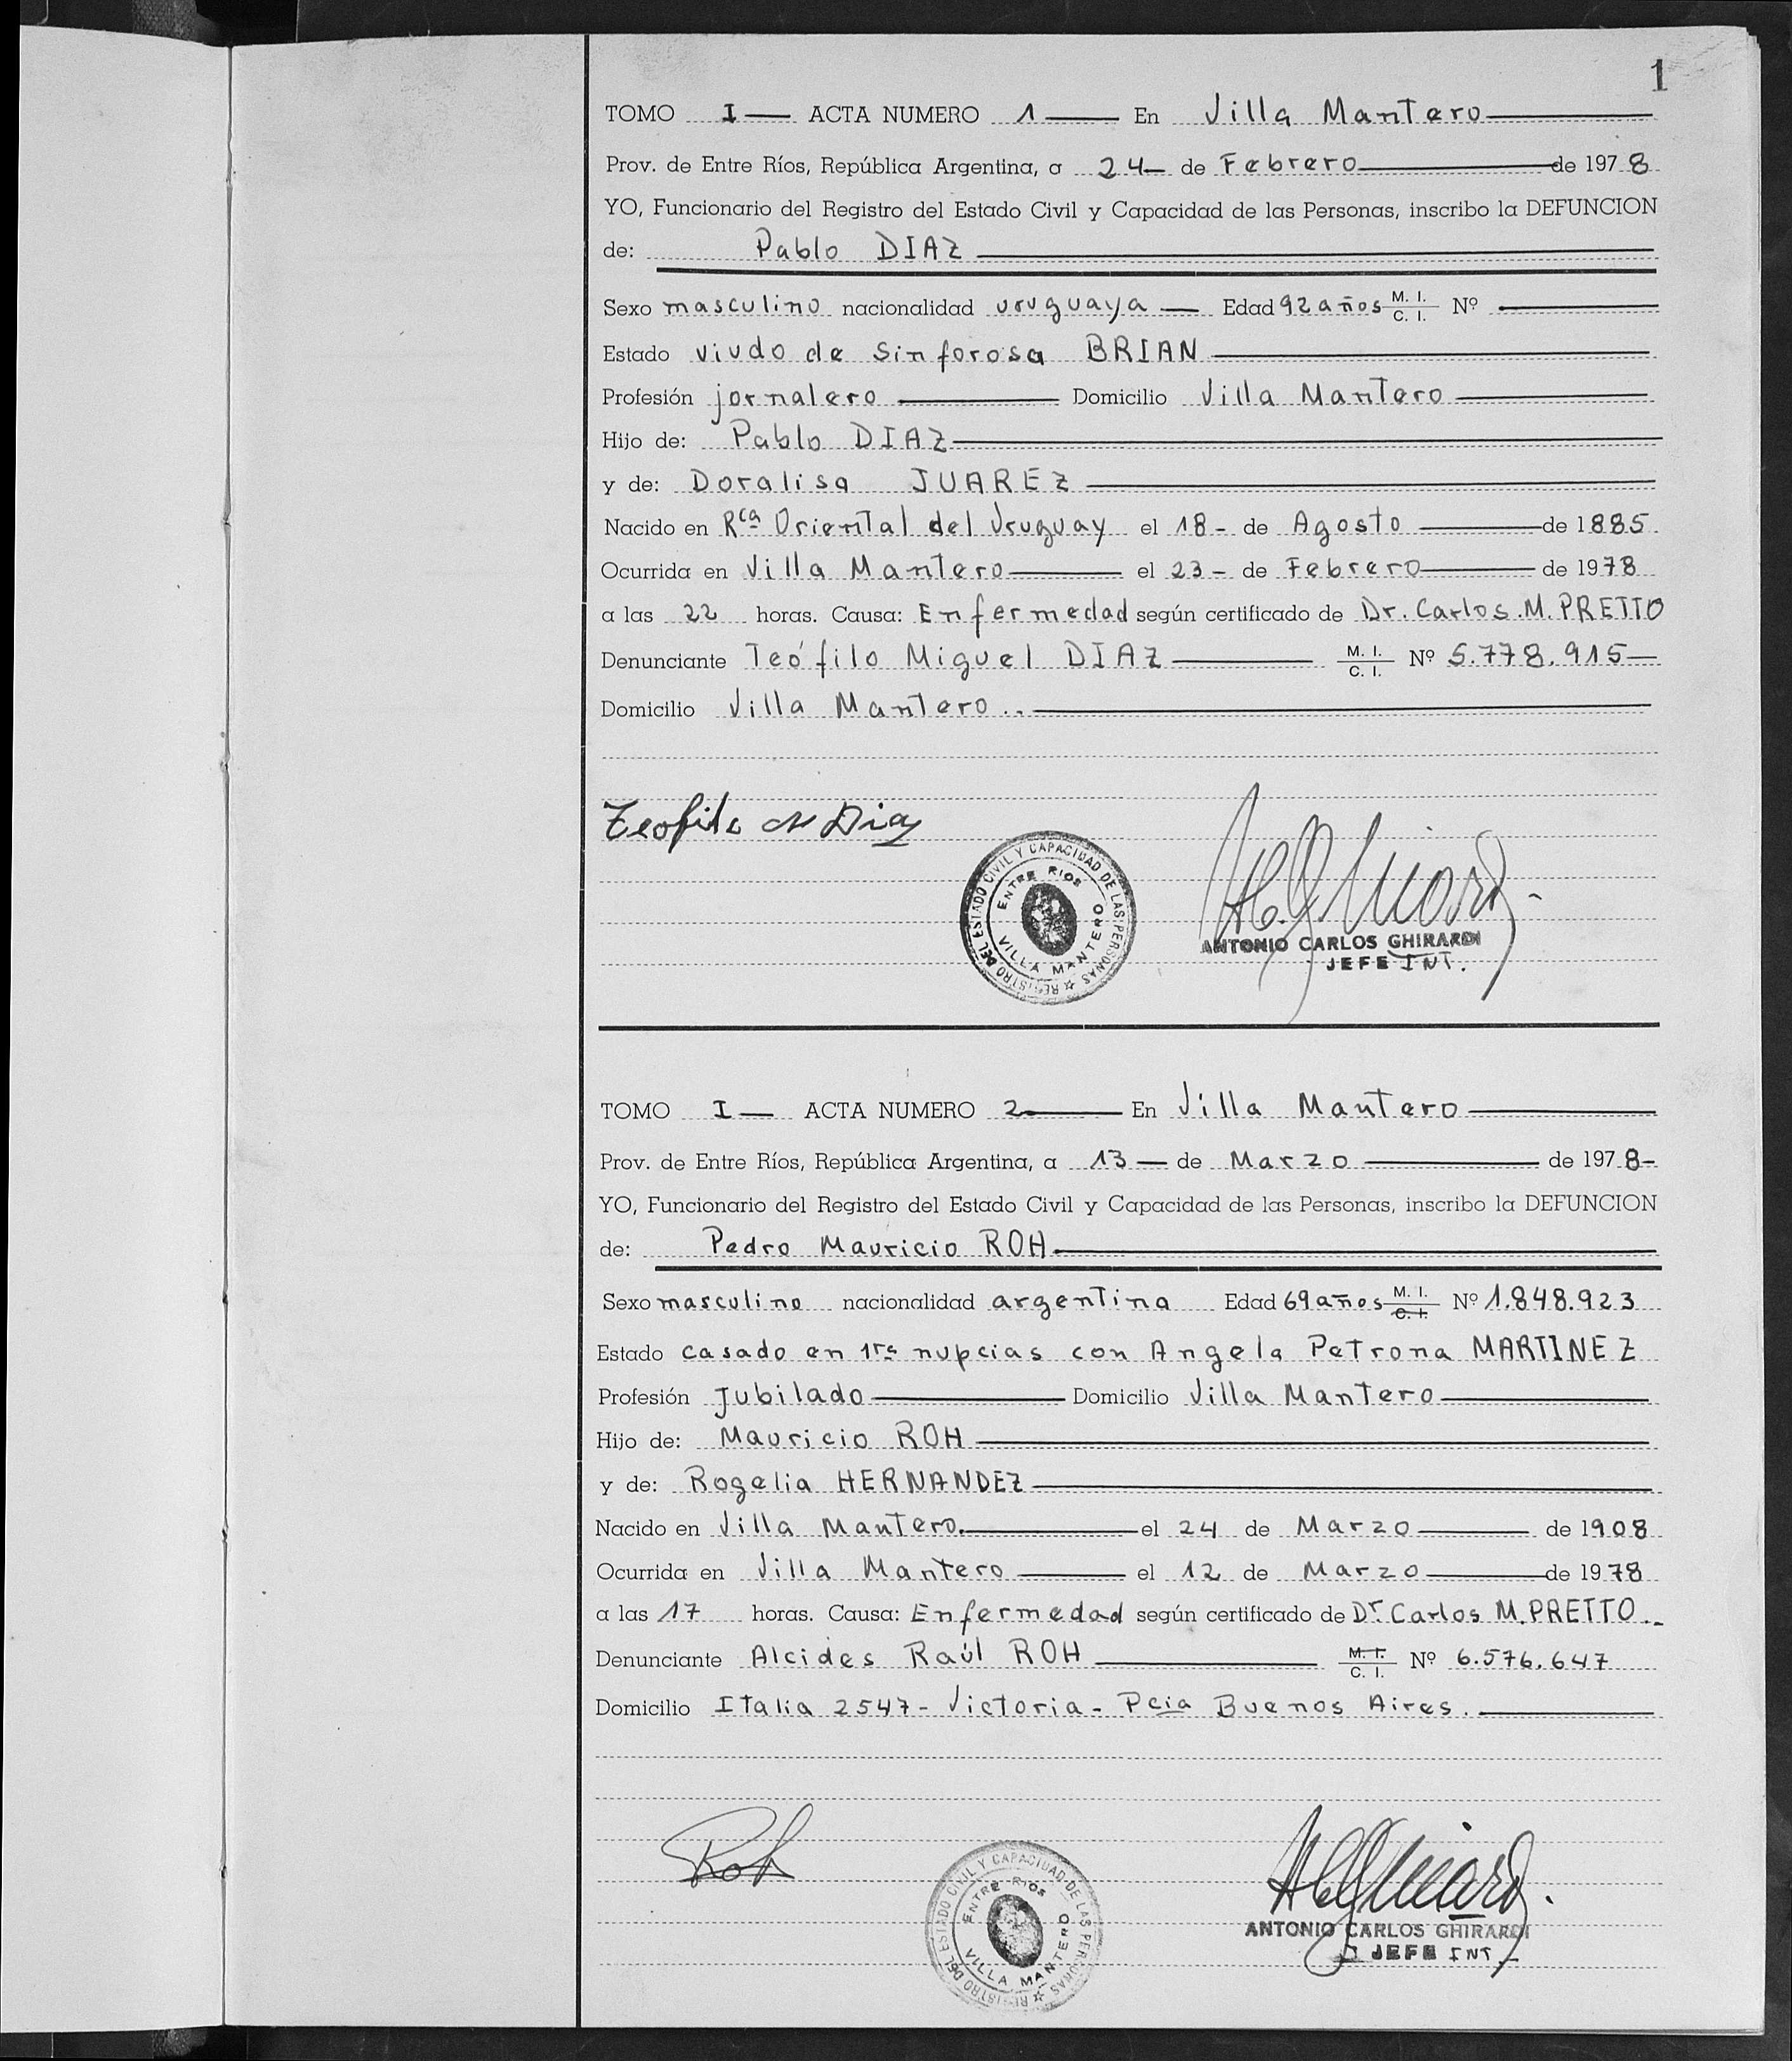 1
TOMO I — ACTA NUMERO 1 — En Villa Mantero
Prov. de Entre Ríos, República Argentina, a 24 — de Febrero — de 1978
YO, Funcionario del Registro del Estado Civil y Capacidad de las Personas, inscribo la DEFUNCION
de: Pablo DIAZ
Sexo masculino nacionalidad uruguaya — Edad 92 años M. I. C. I. Nº —
Estado viudo de Sinforosa BRIAN
Profesión jornalero — Domicilio Villa Mantero
Hijo de: Pablo DIAZ
y de: Doralisa JUAREZ
Nacido en Rca Oriental del Uruguay el 18 - de Agosto — de 1885
Ocurrida en Villa Mantero — el 23 - de Febrero — de 1978
a las 22 horas. Causa: Enfermedad según certificado de Dr. Carlos M. PRETTO
Denunciante Teófilo Miguel DIAZ — M. I. C. I. Nº 5.778.915 —
Domicilio Villa Mantero..
Teofilo M Diaz
REGISTRO DEL ESTADO CIVIL Y CAPACIDAD DE LAS PERSONAS
ENTRE RIOS
VILLA MANTERO
ANTONIO CARLOS GHIRARDI
JEFE INT.
TOMO I — ACTA NUMERO 2 — En Villa Mantero
Prov. de Entre Ríos, República Argentina, a 13 — de Marzo — de 1978 -
YO, Funcionario del Registro del Estado Civil y Capacidad de las Personas, inscribo la DEFUNCION
de: Pedro Mauricio ROH
Sexo masculino nacionalidad argentina Edad 69 años M. I. C. I. Nº 1.848.923
Estado casado en 1ras nupcias con Angela Petrona MARTINEZ
Profesión Jubilado — Domicilio Villa Mantero
Hijo de: Mauricio ROH
y de: Rogelia HERNANDEZ
Nacido en Villa Mantero. — el 24 de Marzo — de 1908
Ocurrida en Villa Mantero — el 12 de Marzo — de 1978
a las 17 horas. Causa: Enfermedad según certificado de Dr. Carlos M. PRETTO..
Denunciante Alcides Raúl ROH — M. I. C. I. Nº 6.576.647
Domicilio Italia 2547 - Victoria - Pcia Buenos Aires.
Roh
REGISTRO DEL ESTADO CIVIL Y CAPACIDAD DE LAS PERSONAS
ENTRE RIOS
VILLA MANTERO
ANTONIO CARLOS GHIRARDI
JEFE INT.